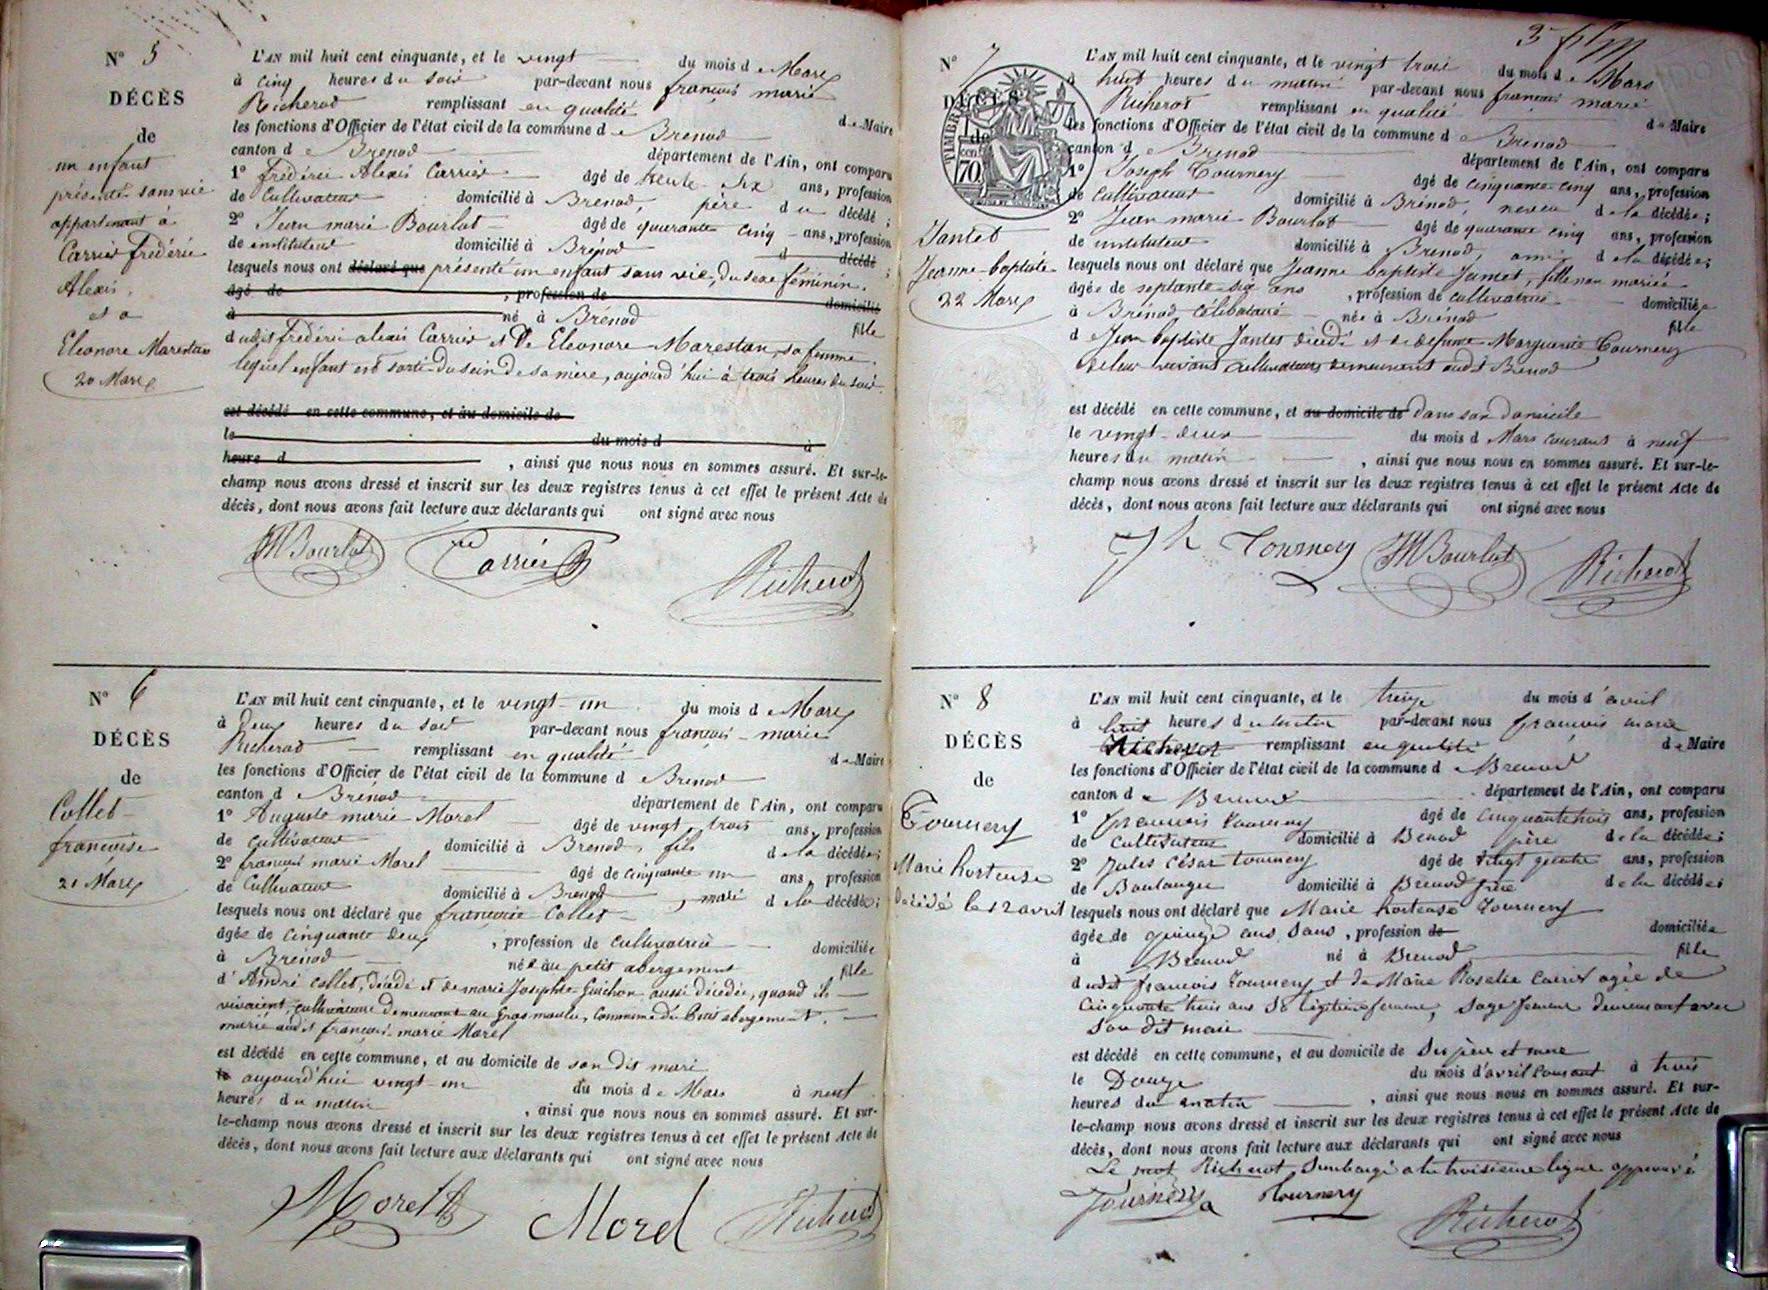 N° 5
DÉCÈS
de
un enfant
présenté sans vie
appartenant à
Carrier frédéric
Alexis,
et a
Eléonore Marestan
20 Mars
L'AN mil huit cent cinquante, et le vingt du mois de Mars
à cinq heures du soir par-devant nous françois marie
Richerot remplissant en qualité de Maire
les fonctions d'Officier de l'état civil de la commune de Brénod
canton de Brenod département de l'Ain, ont comparu
1° frédéric Alexis Carrier âgé de trente six ans, profession
de Cultivateur domicilié à Brenod, père du décédé ;
2° Jean marie Bourlot âgé de quarante cinq ans, profession
de instituteur domicilié à Brénod d décédé ;
lesquels nous ont déclaré que présenté un enfant sans vie, du sexe féminin.
âgé de , profession de domicilié
à né à Brénod fille
dudit frédéric alexis Carrier et De Eleonore Marestan, sa femme.
lequel enfant est sorti du sein de sa mère, aujourd'hui à trois heures du soir
est décédé en cette commune, et au domicile de
le du mois d à
heure d , ainsi que nous nous en sommes assuré. Et sur-le-
champ nous avons dressé et inscrit sur les deux registres tenus à cet effet le présent Acte de
décès, dont nous avons fait lecture aux déclarants qui ont signé avec nous
JM Bourlot Carrier Richerot
N° 6
DÉCÈS
de
Collet
françoise
21 Mars
L'AN mil huit cent cinquante, et le vingt-un du mois de Mars
à deux heures du soir par-devant nous françois-marie
Richerot remplissant en qualité de Maire
les fonctions d'Officier de l'état civil de la commune d Brenod
canton d Brénod département de l'Ain, ont comparu
1° Auguste marie Morel âgé de vingt trois ans, profession
de cultivateur domicilié à Brenod, fils de la décédée;
2° françois marie Morel âgé de cinquante un ans, profession
de Cultivateur domicilié à Brenod, mari de la décédée;
lesquels nous ont déclaré que françoise Collet
âgée de cinquante deux , profession de cultivatrice domiciliée
à Brénod née au petit abergement fille
d'André collet, décédé et de marie Josephte Guichon aussi décédée, quand ils
vivaient, cultivateurs demeurant au Gros moulu, Commune du abergement.
mariée audit françois-marie Morel
est décédé en cette commune, et au domicile de son dit mari
le aujourd'hui vingt-un du mois de Mars à neuf
heures du matin , ainsi que nous nous en sommes assuré. Et sur-
le-champ nous avons dressé et inscrit sur les deux registres tenus à cet effet le présent Acte de
décès, dont nous avons fait lecture aux déclarants qui ont signé avec nous
Morel Morel Richerot
N° 7
DÉCÈS
de
TIMBRE
cen 70
Jantet
Jeanne baptiste
22 Mars
L'AN mil huit cent cinquante, et le vingt trois du mois de Mars
à huit heures du matin par-devant nous françois marie
Richerot remplissant en qualité de Maire
les fonctions d'Officier de l'état civil de la commune de Brénod
canton d Brenod département de l'Ain, ont comparu
1° Joseph Tournery âgé de cinquante-cinq ans, profession
de cultivateur domicilié à Brénod, neveu de la décédée;
2° Jean marie Bourlot âgé de quarante cinq ans, profession
de instituteur domicilié à Brenod, ami de la décédée;
lesquels nous ont déclaré que Jeanne baptiste Jantet, fille non mariée
âgée de septante six ans , profession de cultivatrice domiciliée
à Brénod Célibataire née à Brénod fille
d Jean baptiste Jantet décédé et de défunte Marguerite Tournery
de leur vivant cultivateurs demeurant audit Brénod
est décédé en cette commune, et au domicile de dans son domicile
le vingt-deux du mois d Mars courant à neuf
heures du matin , ainsi que nous nous en sommes assuré. Et sur-le-
champ nous avons dressé et inscrit sur les deux registres tenus à cet effet le présent Acte de
décès, dont nous avons fait lecture aux déclarants qui ont signé avec nous
Jh Tournery JM Bourlot Richerot
N° 8
DÉCÈS
de
Tournery
Marie hortense
décédé le 12 avril
L'AN mil huit cent cinquante, et le treize du mois d'avril
à huit heures du matin par-devant nous françois marie
Richerot remplissant en qualité de Maire
les fonctions d'Officier de l'état civil de la commune d Brenod
canton d Brenod département de l'Ain, ont comparu
1° françois Tournery âgé de cinquante trois ans, profession
de cultivateur domicilié à Brenod père de la décédée;
2° Jules César tournery âgé de vingt quatre ans, profession
de Boulanger domicilié à Brenod frère de la décédée;
lesquels nous ont déclaré que Marie hortense Tournery
âgée de quinze ans sans , profession de domiciliée
à Brenod né à Brenod fille
dudit françois Tournery et de Marie Roselie Carrier agée de
cinquante trois ans Sa légitime femme, Sage femme demeurant avec
Son dit mari
est décédé en cette commune, et au domicile de Ses père et mère
le Douze du mois d'avril Courant à trois
heures du matin , ainsi que nous nous en sommes assuré. Et sur-
le-champ nous avons dressé et inscrit sur les deux registres tenus à cet effet le présent Acte de
décès, dont nous avons fait lecture aux déclarants qui ont signé avec nous
Le mot Richerot, Surchargé a la troisieme ligne approuvé
Tournery Tournery Richerot